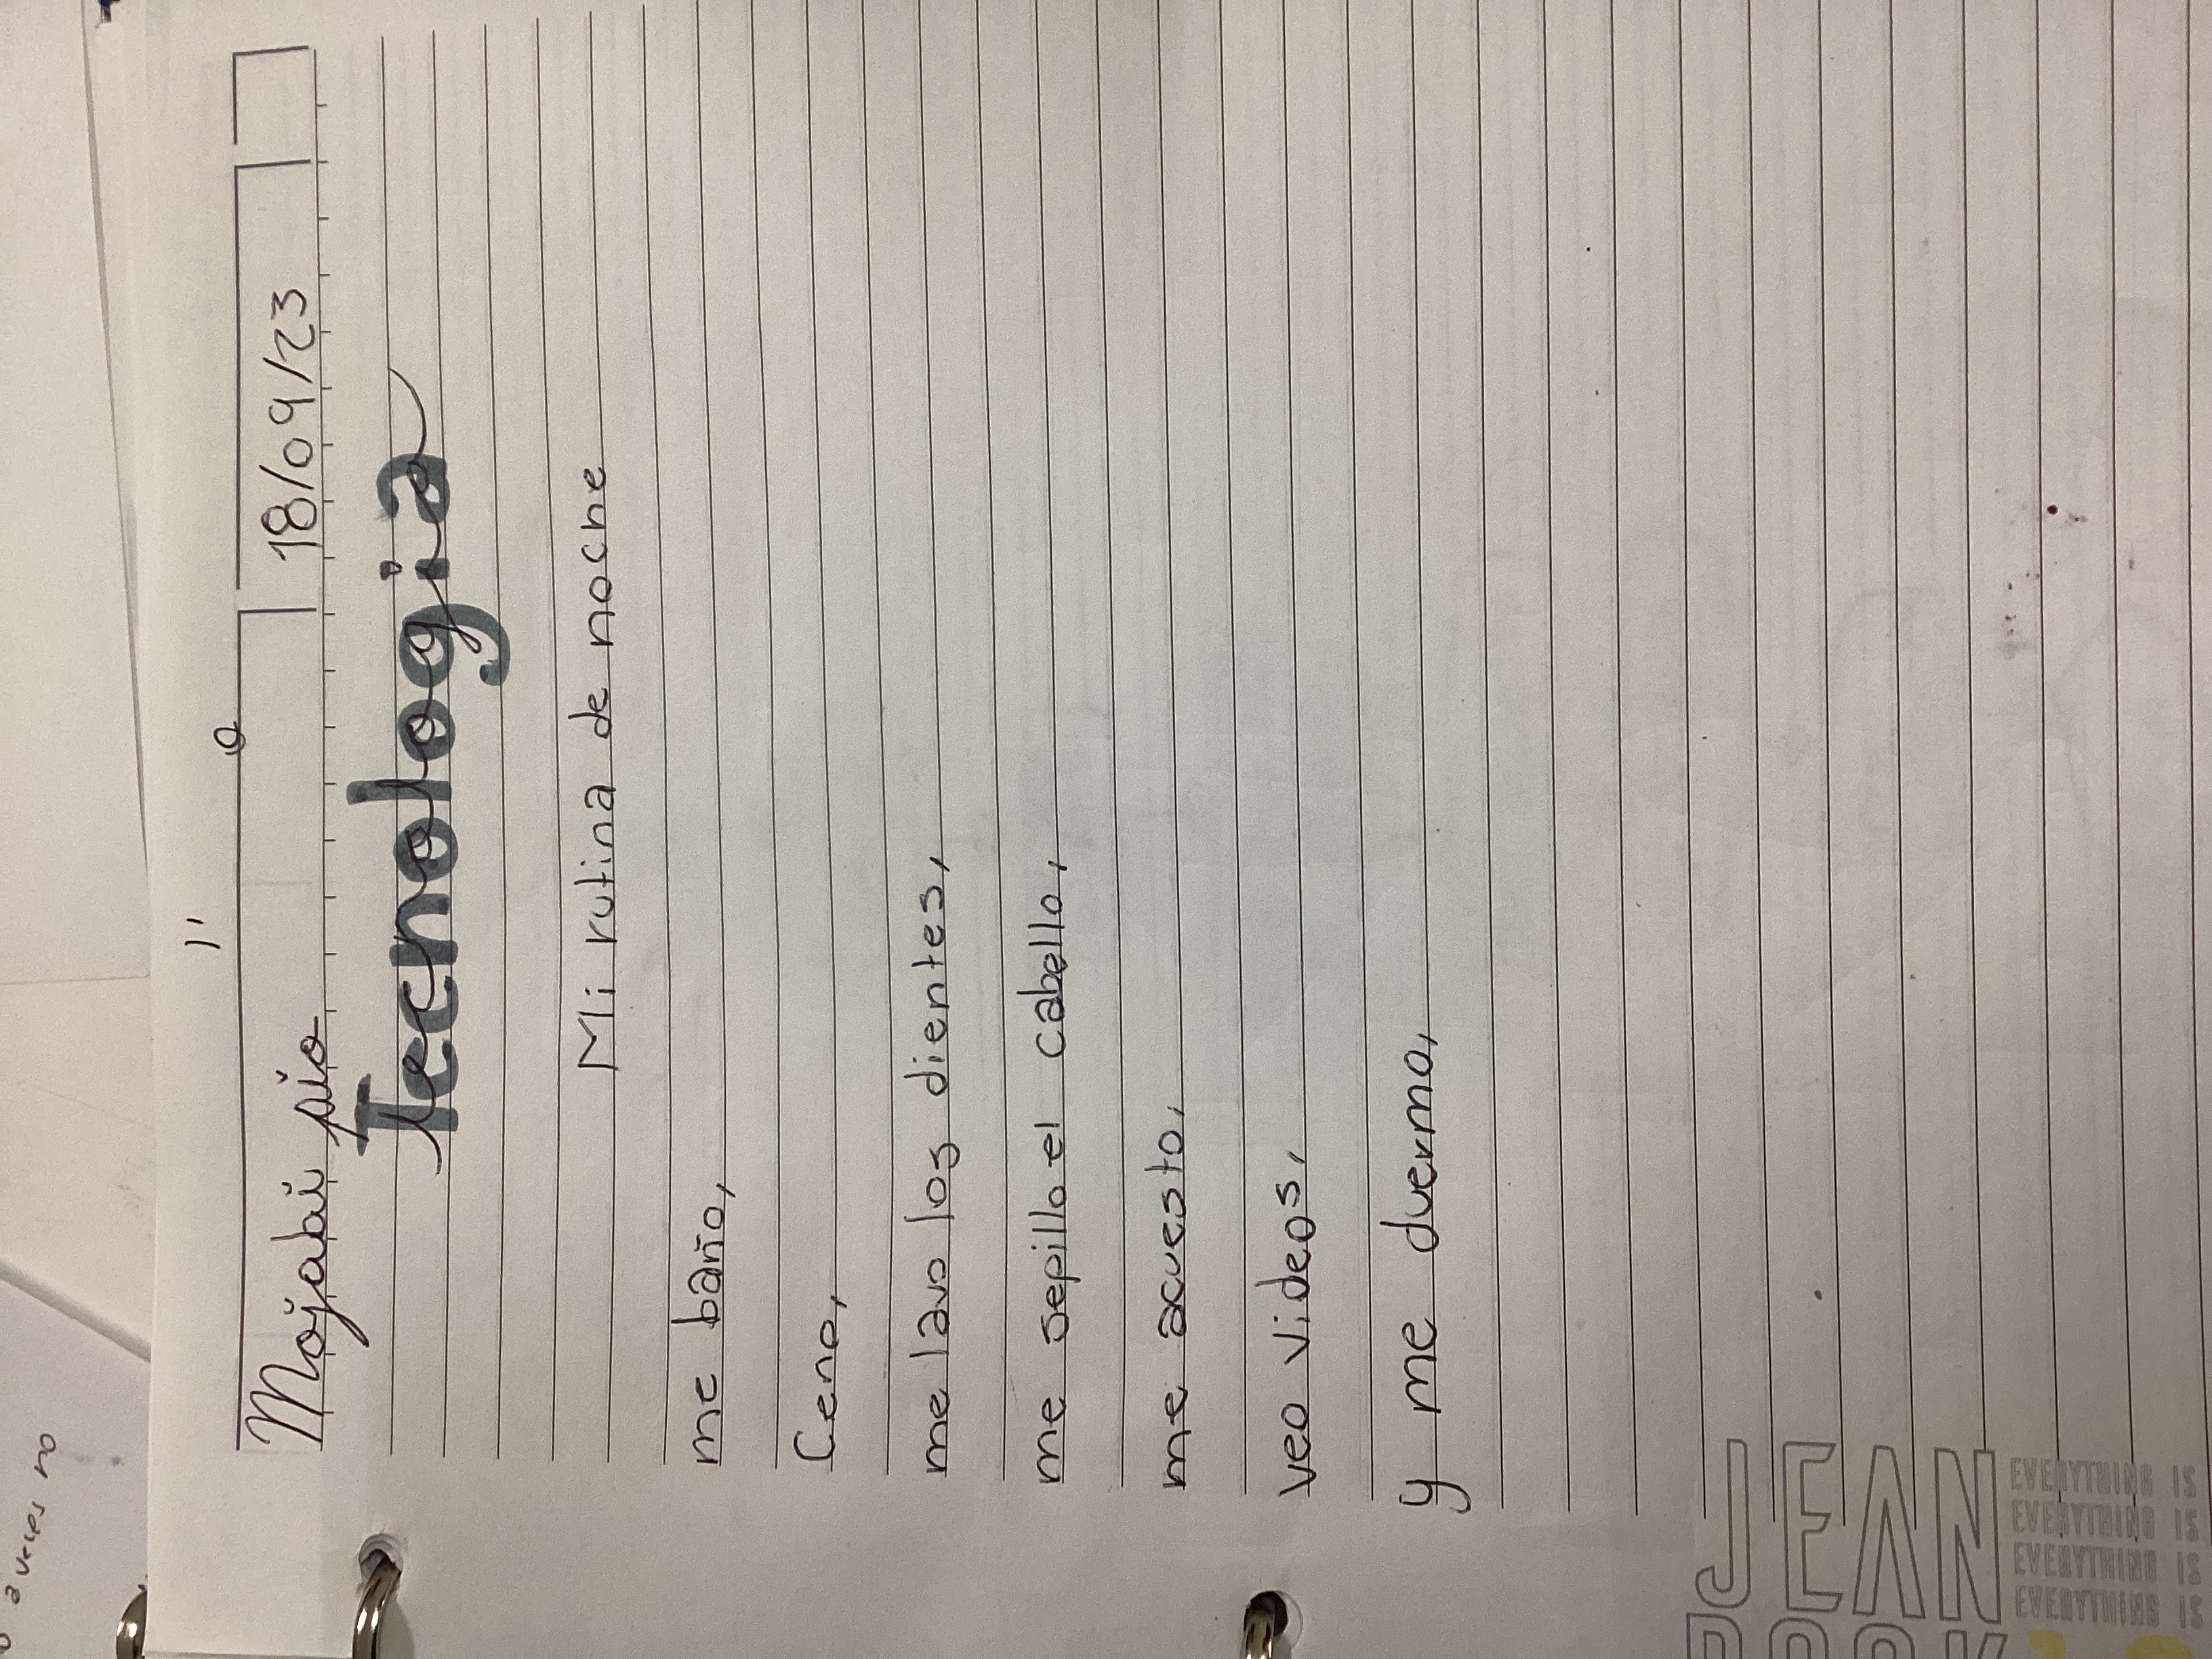 18/09/23
Tecnologia
Mi rutina de noche
me baño,
Ceno,
me lavo los dientes,
me sepillo el cabello,
me acuesto,
veo videos,
y me duermo,
JEAN
BOOK
EVERYTHING IS
EVERYTHING IS
EVERYTHING IS
EVERYTHING IS
a veces no